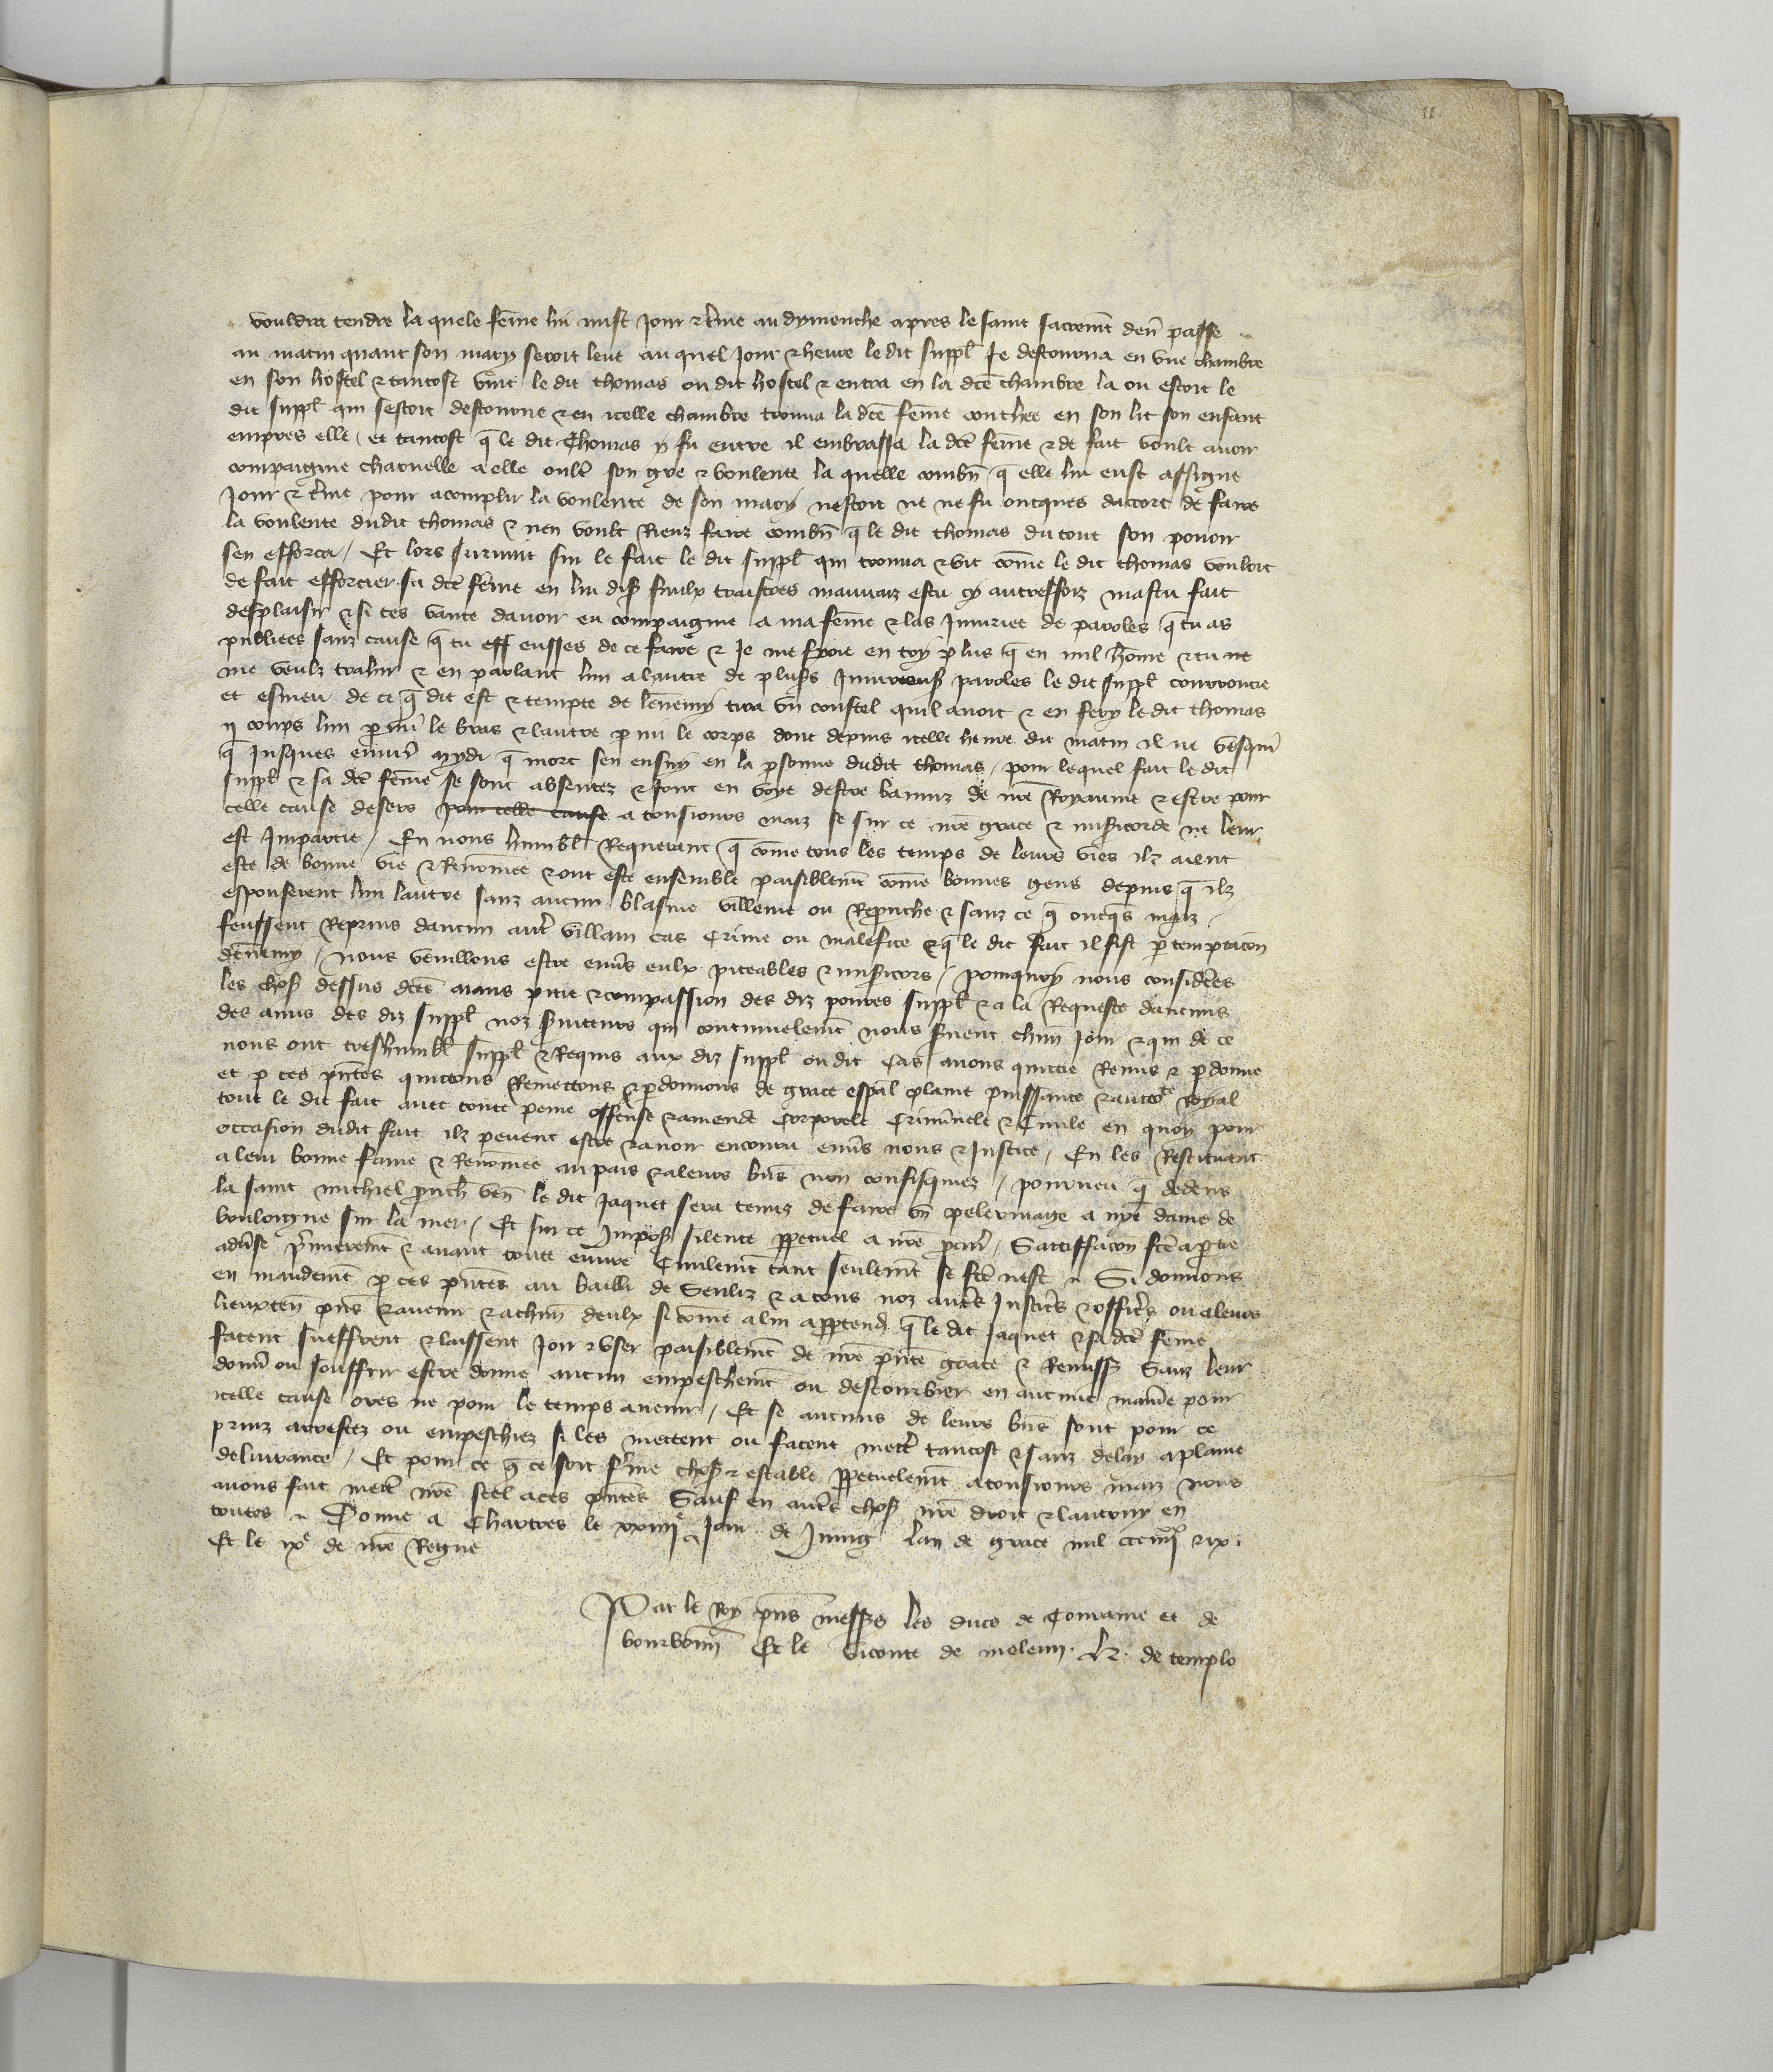 11.
vouldra tendre la quele fe͞me lui mist jour & t͛me au dymenche apres le saint sacrem̄t den̄ passe
au matin quant son mary seroit leve au quel jour & heure le dit suppl̄ se destourna en une chambre
en son hostel & tantost vint le dit thomas ou dit hostel & entra en la dc̄e chambre la ou estoit le
dit suppl̄ qui sestoit destourne & en icelle chambre trouva la dc̄e fe͞me couchee en son lit son enfant
empres elle / et tantost q̄ le dit Thomas y fu entre il embrassa la dc̄e fe͞me & de fait voult avoir
compaignie charnelle a elle oult͛ son gre & voulente la quelle combn̄ q̄ elle lui eust assigne
jour & t͛me pour acomplir la voulente de son mary nestoit ne ne fu oncques dacort de faire
la voulente dudit thomas & nen voult Riens faire combn̄ q̄ le dit thomas du tout son povoir
sen efforca / Et lors survint sur le fait le dit suppl̄ qui trouva & vit co͞me le dit thomas vouloit
de fait efforcier sa dc̄e fe͞me en lui dis̄ faulx traistres mauvaiz es tu cy autresfoiz mas tu fait
desplaisir & si tes vante davoir eu compaignie a ma fe͞me & las Injuriee de paroles q̄ tu as
publiees sanz cause q̄ tu eff eusses de ce faire & Je me fioie en toy plus q̄ en nul ho͞me & tu ne
me veulz trahir & en parlant lun a lautre de plus͛s Injurieus̄ paroles le dit suppl̄ courroucie
et esmeu de ce q̄ dit est & tempte de lennemy tira un coustel quil avoit & en fery le dit thomas
ij coups lun p̱mi le bras & lautre p̱mi le corps dont depuis icelle heure du matin il ne vesqui
q̄ jusques envir̄ mydi q̄ mort sen ensuy en la p̱sonne dudit thomas / pour lequel fait le dit
suppl̄ & sa dc̄e fe͞me se sont absentez & sont en voye destre banniz de nr̄e Royaume & estre pour
celle cause desers pour celle cause a tousjours maiz se sur ce nr̄e grace & mis̄icorde ne leur
est Impartie / En nous humbl̄ Requerant q̄ co͞me tous les temps de leurs vies ilz aient
este de bonne vie & Reno͞mee & ont este ensemble paisiblem̄t co͞me bonnes gens depuis q̄ ilz
espouserent lun lautre sanz aucun blasme villenie ou Reprouche & sanz ce q̄ oncq̄s maiz
feussent Repris daucun autr̄ villain cas Crime ou malefice & q̄ le dit fait il fist p̱ temptacōn
dennemy / nous veuillons estre env͛s eulx piteables & mis̄icors / pourquoy nous consider̄es
les chos̄ dessus dc̄es aians pitie & compassion des diz povres suppl̄ & a la Requeste daucuns
des amis des diz suppl̄ noz s̄viteurs qui continuelem̄t nous s̄vent chūn jour & qui de ce
nous ont treshumbl̄ suppl̄ & Requis aux diz suppl̄ ou dit Cas avons quittie Remis & p̱donne
et p̱ ces pn̄tes quittons Remettons & p̱donnons de grace esp̄al plaine puissance & auctͦte Royal
tout le dit fait avec toute peine offense & amende Corporele Criminele & Civile en quoy pour
occasion dudit fait ilz pevent estre & avoir encouru env͛s nous & Justice / En les Restituant
a leur bonne fame & Reno͞mee au pais & a leurs bn̄s non confisquiez / pourveu q̄ dedens
la saint michiel prouch̄ ven̄ le dit Jaquet sera tenuz de faire un pelerinage a nr̄e dame de
bouloigne sur la mer / Et sur ce Impos̄ silence p̱petuel a nr̄e pr̄ocur̄ / Sattisfacōn fc̄e a p̱tie
adv͛se p̄mierem̄t & avant toute euvre Civilem̄t tant seulem̄t se fc̄e nest Si donnons
en mandem̄t p̱ ces pn̄tes au bailli de Senliz & a tous noz autr̄s Justic͛s & offic͛s ou a leurs
lieuxten̄ pn̄s & avenir & a chūn deulx si co͞me a lui app̱tend̄ q̄ le dit Jaquet & sa dc̄e fe͞me
facent sueffrent & laissent joir & user paisiblem̄t de nr̄e pn̄te grace & Remiss̄ Sanz leur
donn̄ ou souffrir estre donne aucun empeschem̄t ou destourbier en aucune mani͛e pour
icelle cause ores ne pour le temps avenir / Et se aucuns de leurs bn̄s sont pour ce
prinz arrestez ou empeschiez si les mettent ou facent mett͛ tantost & sanz delay a plaine
delivrance / Et pour ce q̄ ce soit f͛me chos̄ & estable p̱petuelem̄t a tousjours maiz nous
avons fait mett͛ nr̄e scel a ces pn̄tes Sauf en autr̄s chos̄ nr̄e droit & lautruy en
toutes Donne a Chartres le xxiiijᵉ jour de Juing lan de grace mil ccciiijˣˣ & ix.
Et le ixᵉ de nr̄e Regne
Par le Roy pn̄s mess͛s les ducs de Touraine et de
bourbonn̄ Et le viconte de meleun. Ja. de templo